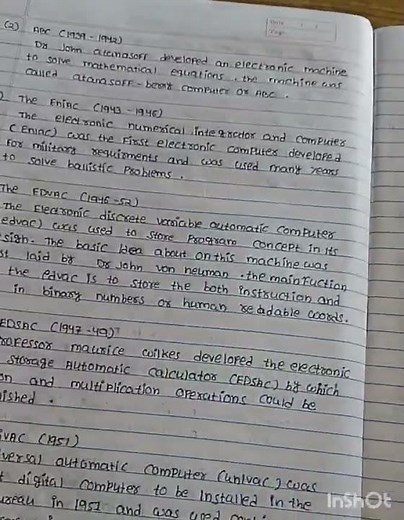 (2) ABC (1939 - 1942)
Dr John atanasoff developed an electronic machine
to solve mathematical equations. the machine was
called atanasoff-berry computer or ABC.
The Eniac (1943 - 1946)
The electronic numerical integrator and computer
(ENIAC) was the first electronic computer developed
For military requirments and was used many years
to solve ballistic problems.
The EDVAC (1946 - 52)
The Electronic discrete variable automatic computer
edvac) was used to store Program concept in its
sign. The basic idea about on this machine was
st laid by Dr John von neuman. the main fuction
the edvac is to store the both instruction and
in binary numbers or human readable words.
EDSAC (1947 - 49)
rofessor maurice wilkes developed the electronic
storage Automatic calculator (EDSAC) by which
on and multiplication operations could be
lished.
IVAC (1951)
iversal automatic computer (univac) was
t digital computer to be installed in the
ureau in 1951 and was used
InShOt